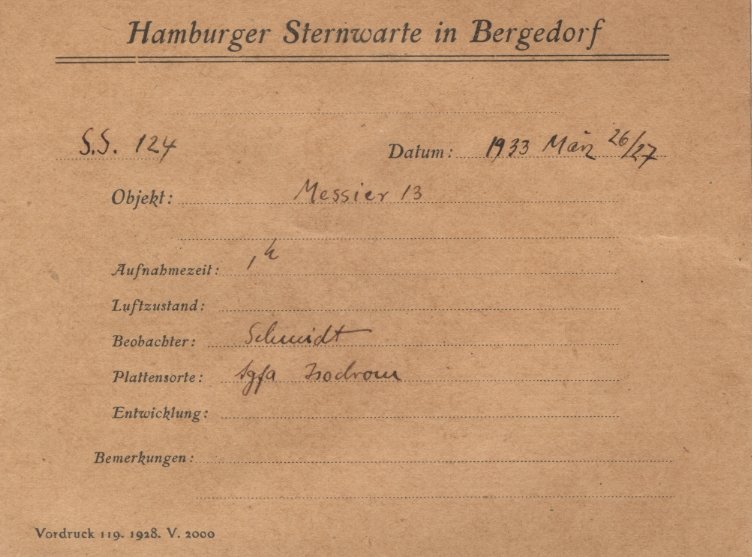 Hamburger Sternwarte in Bergedorf
S.S. 124 Datum: 1933 März 26/27
Objekt: Messier 13
Aufnahmezeit: 1h
Luftzustand:
Beobachter: Schmidt
Plattensorte: Agfa Isochrom
Entwicklung:
Bemerkungen:
Vordruck 119. 1928. V. 2000